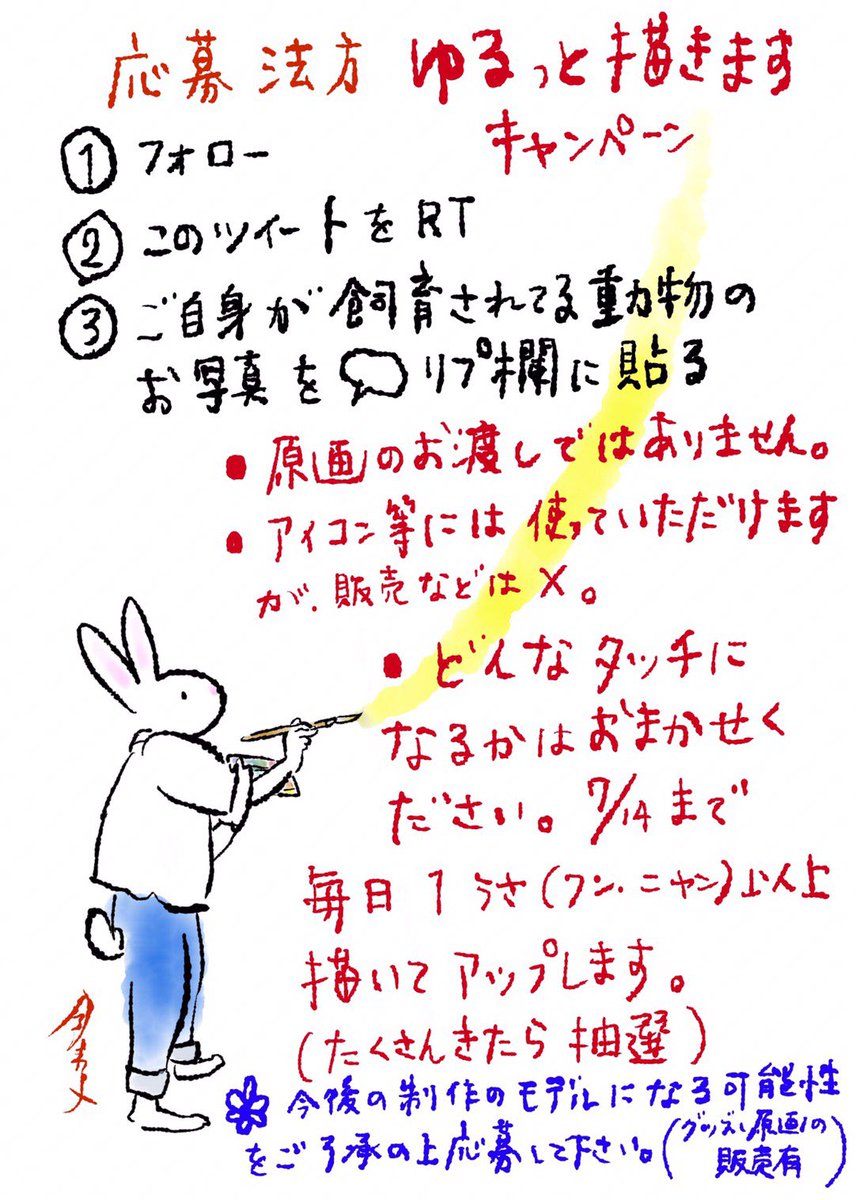 応募法方 ゆるっと描きます
キャンペーン
① フォロー
② このツイートをRT
③ ご自身が飼育されてる動物の
お写真を リプ欄に貼る
● 原画のお渡しではありません。
● アイコン等には使っていただけます
が、販売などは×。
● どんなタッチに
なるかはおまかせく
ださい。7/14まで
毎日1うさ(ワン・ニャン)以上
描いてアップします。
(たくさんきたら抽選)
今後の制作のモデルになる可能性
をご了承の上応募して下さい。(グッズ、原画の
販売有)